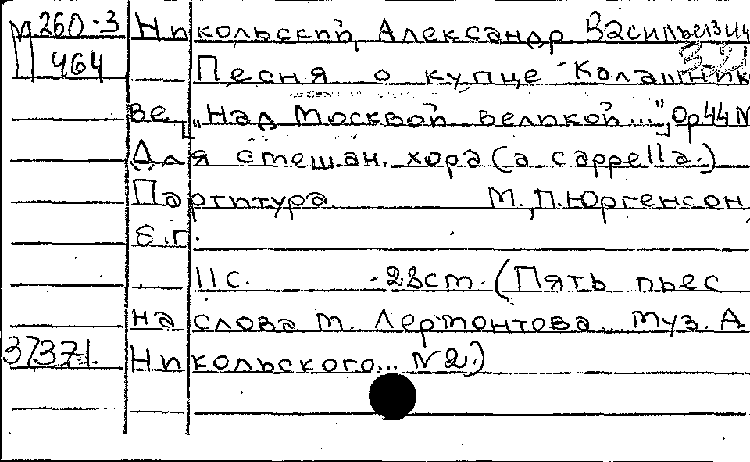 М260-3 Никольский, Александр Васильевич
П 464 Песня о купце Калашник
ве „Над Москвой великой..." Ор44 N
Для смешан. хора (a cappella.)
Партитура М., П. Юргенсон,
б.г.
11с. -28ст. (Пять пьес
на слова М. Лермонтова. Муз. А
37371. Никольского... N2.)